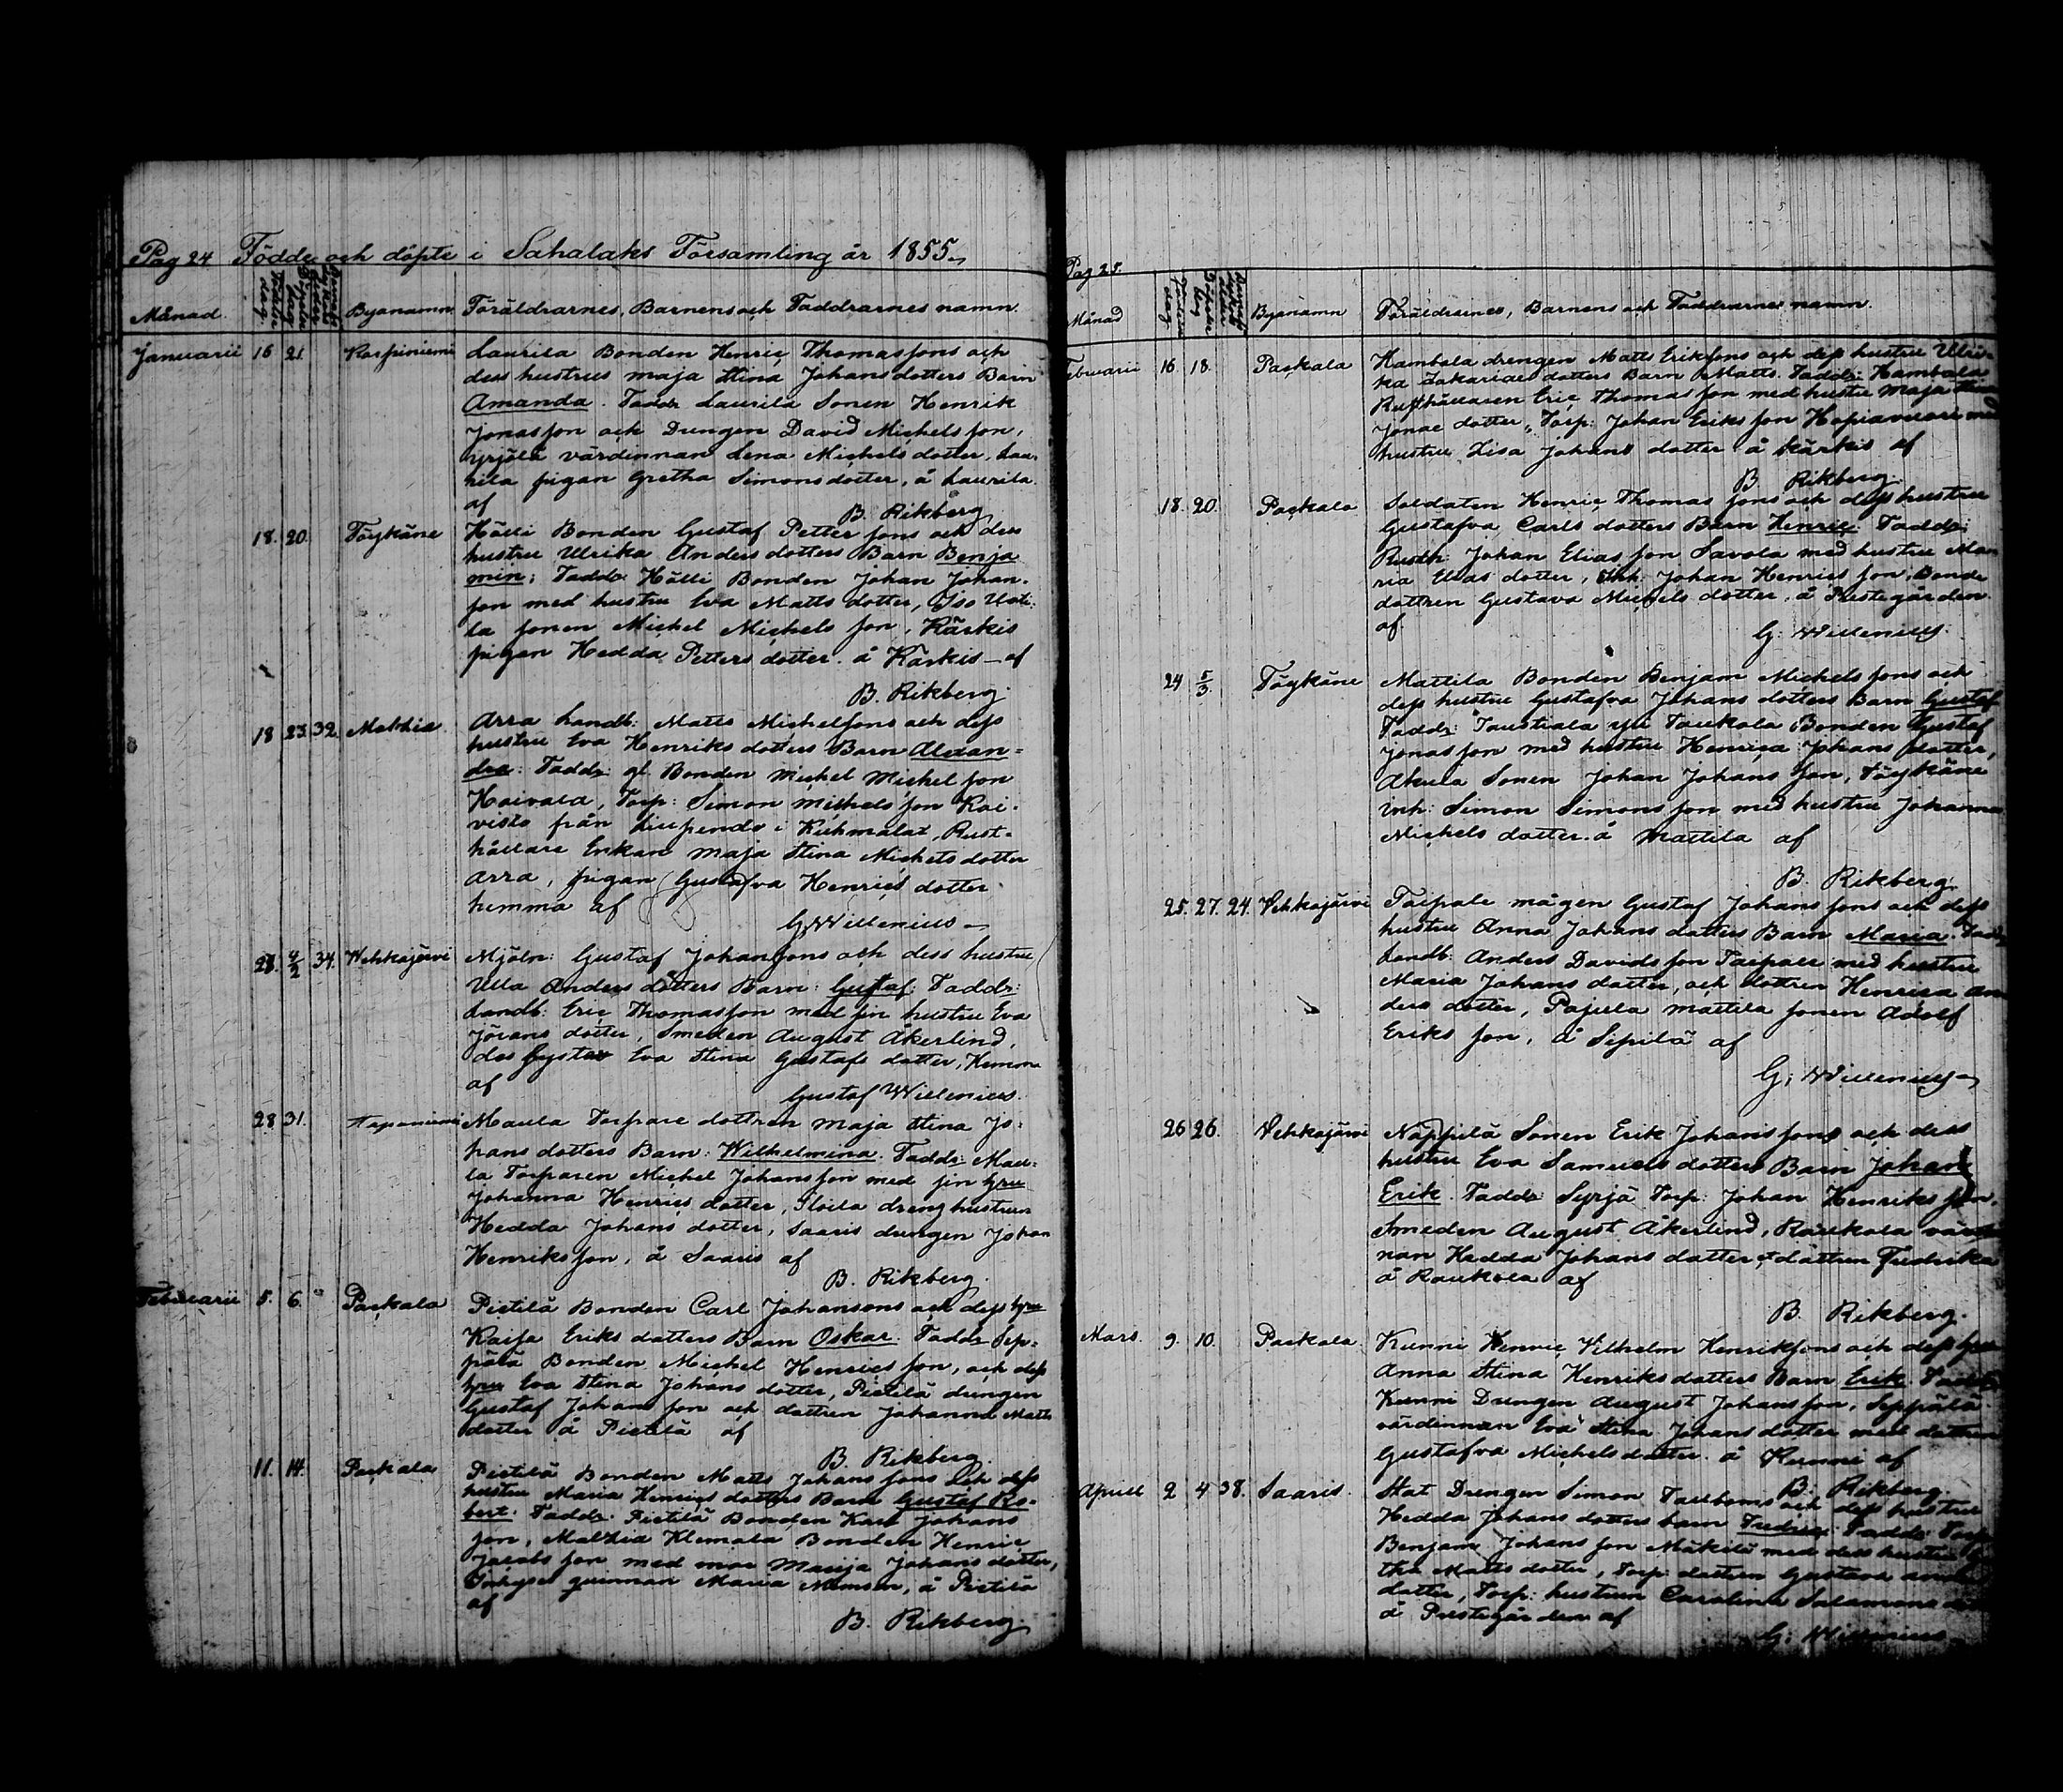 Pag 24 Födde och döpte i Sahalaks Församling år 1855.
Månad. Födelse dag. Döpelse dag Byanamn Föräldrarnes, Barnens och Faddrarnes namn.
Januarii 16 21. Karpiniemi Laurila Bonden Henric Thomassons och
dess hustrus Maja Stina Johansdotters Barn
Amanda. Faddr. Laurila Sonen Henrik
Jonasson och Drengen David Michelsson,
Yrjölä värdinnan Lena Michelsdotter, Lau-
rila pigan Gretha Simonsdotter, å Laurila
af B. Rikberg
18. 20. Töykäne Hölli Bonden Gustaf Petter sons och dess
hustru Ulrika Anders dotters Barn Benja
min; Faddr. Hölli Bonden Johan Johan-
son med hustru Eva Matts dotter, Iso
la sonen Michel Michels son, Kärkis
pigan Hedda Petters dotter. å Kärkis – af
B. Rikberg.
18 23. 32. Mathia Arra Landb: Matts Michelsons och dess
hustru Eva Henriks dotters Barn Alexan-
dra. Faddr. gl. Bonden Michel Michel son
Hoivala, Torp: Simon Michels son Koi-
visto från Liupendo i Kuhmalax, Rust-
hållare Enkan Maja Stina Michels dotter
Arra, pigan Gustafva Henrics dotter
hemma af
G. Willenius
4/2 34. Wehkajärvi Mjöln: Gustaf Johansons och dess hustru
Ulla Anders dotters Barn: Gustaf. Faddr:
Landb: Eric Thomasson med sin hustru Eva
Jörans dotter, Smeden August Åkerlind,
des Eva Stina Gustafs dotter, Hemma
af Gustaf Willenius.
28 31. Tapaniemi Maula Torpare dottren Maja Stina Jo-
hans dotters Barn: Wilhelmina. Faddr. Mau-
la Torparen Michel Johansson med sin hru
Johanna Henrics dotter, drenghustrun
Hedda Johans dotter, Saaris drengen Johan
Henriksson, å Saaris af
B. Rikberg.
Februarii 5. 6. Packala Pietilä Bonden Carl Johansons och dess hru
Kaisa Eriks dotters Barn Oskar. Faddr. Sep-
pälä Bonden Michel Henrics son, och dess
hru Eva Stina Johans dotter, Pietilä drengen
Gustaf Johans son och dottren Johanna Matts
dotter å Pietilä af
B. Rikberg.
11. 14. Packala Pietilä Bonden Matts Johans sons och dess
hustru Maria Henrics dotters Barn Gustaf Ro-
bert. Faddr. Pietilä Bonden Karl Johans
son, Mathia Klemola Bonden Henric
Jacobs son med mor Maija Johans dotter,
Inhyses quinnan Maria å Pietilä
af
B. Rikberg.
Pag 25.
Månad Byanamn Föräldrarnes, Barnens och Faddrarnes namn.
Februarii 16. 18. Packala Hambala drengen Matts Eriksons och dess hustru Ulri-
ka Zakarias dotters Barn Matts. Faddr: Hambala
Rusthållaren Eric Thomas son med hustru Maja Stina
Jonae dotter, Torp: Johan Eriks son Hopiavuori med
hustru Lisa Johans dotter å Kärkis af
B Rikberg.
18. 20. Packala Soldaten Henric Thomas sons och dess hustru
Gustafva Carls dotters Barn Henric. Faddr:
Rusth: Johan Elias son Savola med hustru Ma-
ria Elias dotter, Johan Henrics son, Bonde
dottren Gustava Michels dotter. å Prestegården
af G. Willenius.
24 5/3. Töykäne Mattila Bonden Benjam Michels sons och
dess hustru Gustafva Johans dotters Barn Gustaf
Faddr: Taustiala Taukola Bonden Gustaf
Jonasson med hustru Henrica Johans dotter,
Akula Sonen Johan Johans son, Töykäne
inh: Simon Simons son med hustru Johanna
Michels dotter. å Mattila af
B. Rikberg.
25. 27. 24. Vehkajärvi Taipale mågen Gustaf Johans sons och dess
hustru Anna Johans dotters Barn Maria. Faddr
Landb: Anders Davids son Taipale med hustru
Maria Johans dotter, och dottren Henrica An
ders dotter, Pajula Mattila sonen Adolf
Eriks son, å Sipilä af
G. Willenius
26 26. Vehkajärvi Näppilä Sonen Erik Johans sons och dess
hustru Eva Samuels dotters Barn Johan
Erik. Faddr Syrjä Torp: Johan Henriks son.
Smeden August Åkerlind, Raukola värdin
nan Hedda Johans dotter, dottren Fredrika
å Raukola af
B. Rikberg.
Mars. 9. 10. Packala. Kunni Henric Vilhelm Henriksons och dess hru
Anna Stina Henriks dotters Barn Erik. Faddr
Kunni Drengen August Johansson, Seppälä
värdinnan Eva Stina Johans dotter med dottren
Gustafva Michels dotter. å Kunni af
B. Rikberg.
Aprill 2 4 38. Saaris. Stat Drengen Simon och dess hustru
Hedda Johans dotters barn Fredric. Faddr Torp
Benjam Johans son Mäkelä med dess hustru
tha Matts dotter, Torp: dottren Gustava
dotter, Torp: hustrun Carolina Salamons
å Prestegården af
G. Willenius